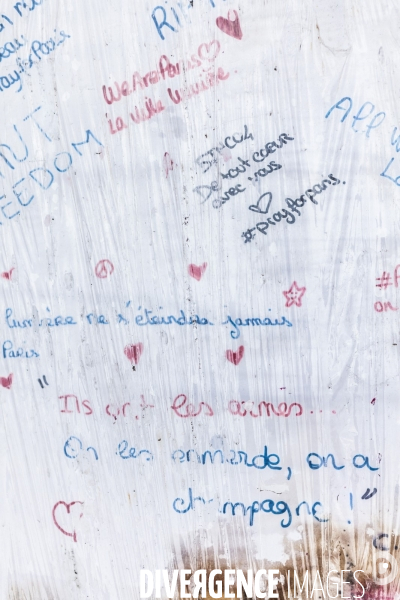 RIP
Pray for Paris
WeAreParis
la ville lumière
FREEDOM
De tout coeur
avec vous
#Prayforparis.
All
lumière ne s'éteindra jamais
Paris
"Ils ont les armes...
On les emmerde, on a
champagne !"
on
DIVERGENCE IMAGES